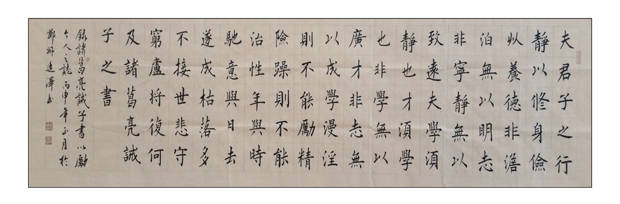 夫君子之行
靜以修身儉
以養德非澹
泊無以明志
非寧靜無以
致遠夫學須
靜也才須學
也非學無以
廣才非志無
以成學漫淫
則不能勵精
險躁則不能
治性年與時
馳意與日去
遂成枯落多
不接世悲守
窮廬將復何
及諸葛亮誡
子之書
錄諸葛亮誡子書以勵
人之志丙申年正月於
鄭州